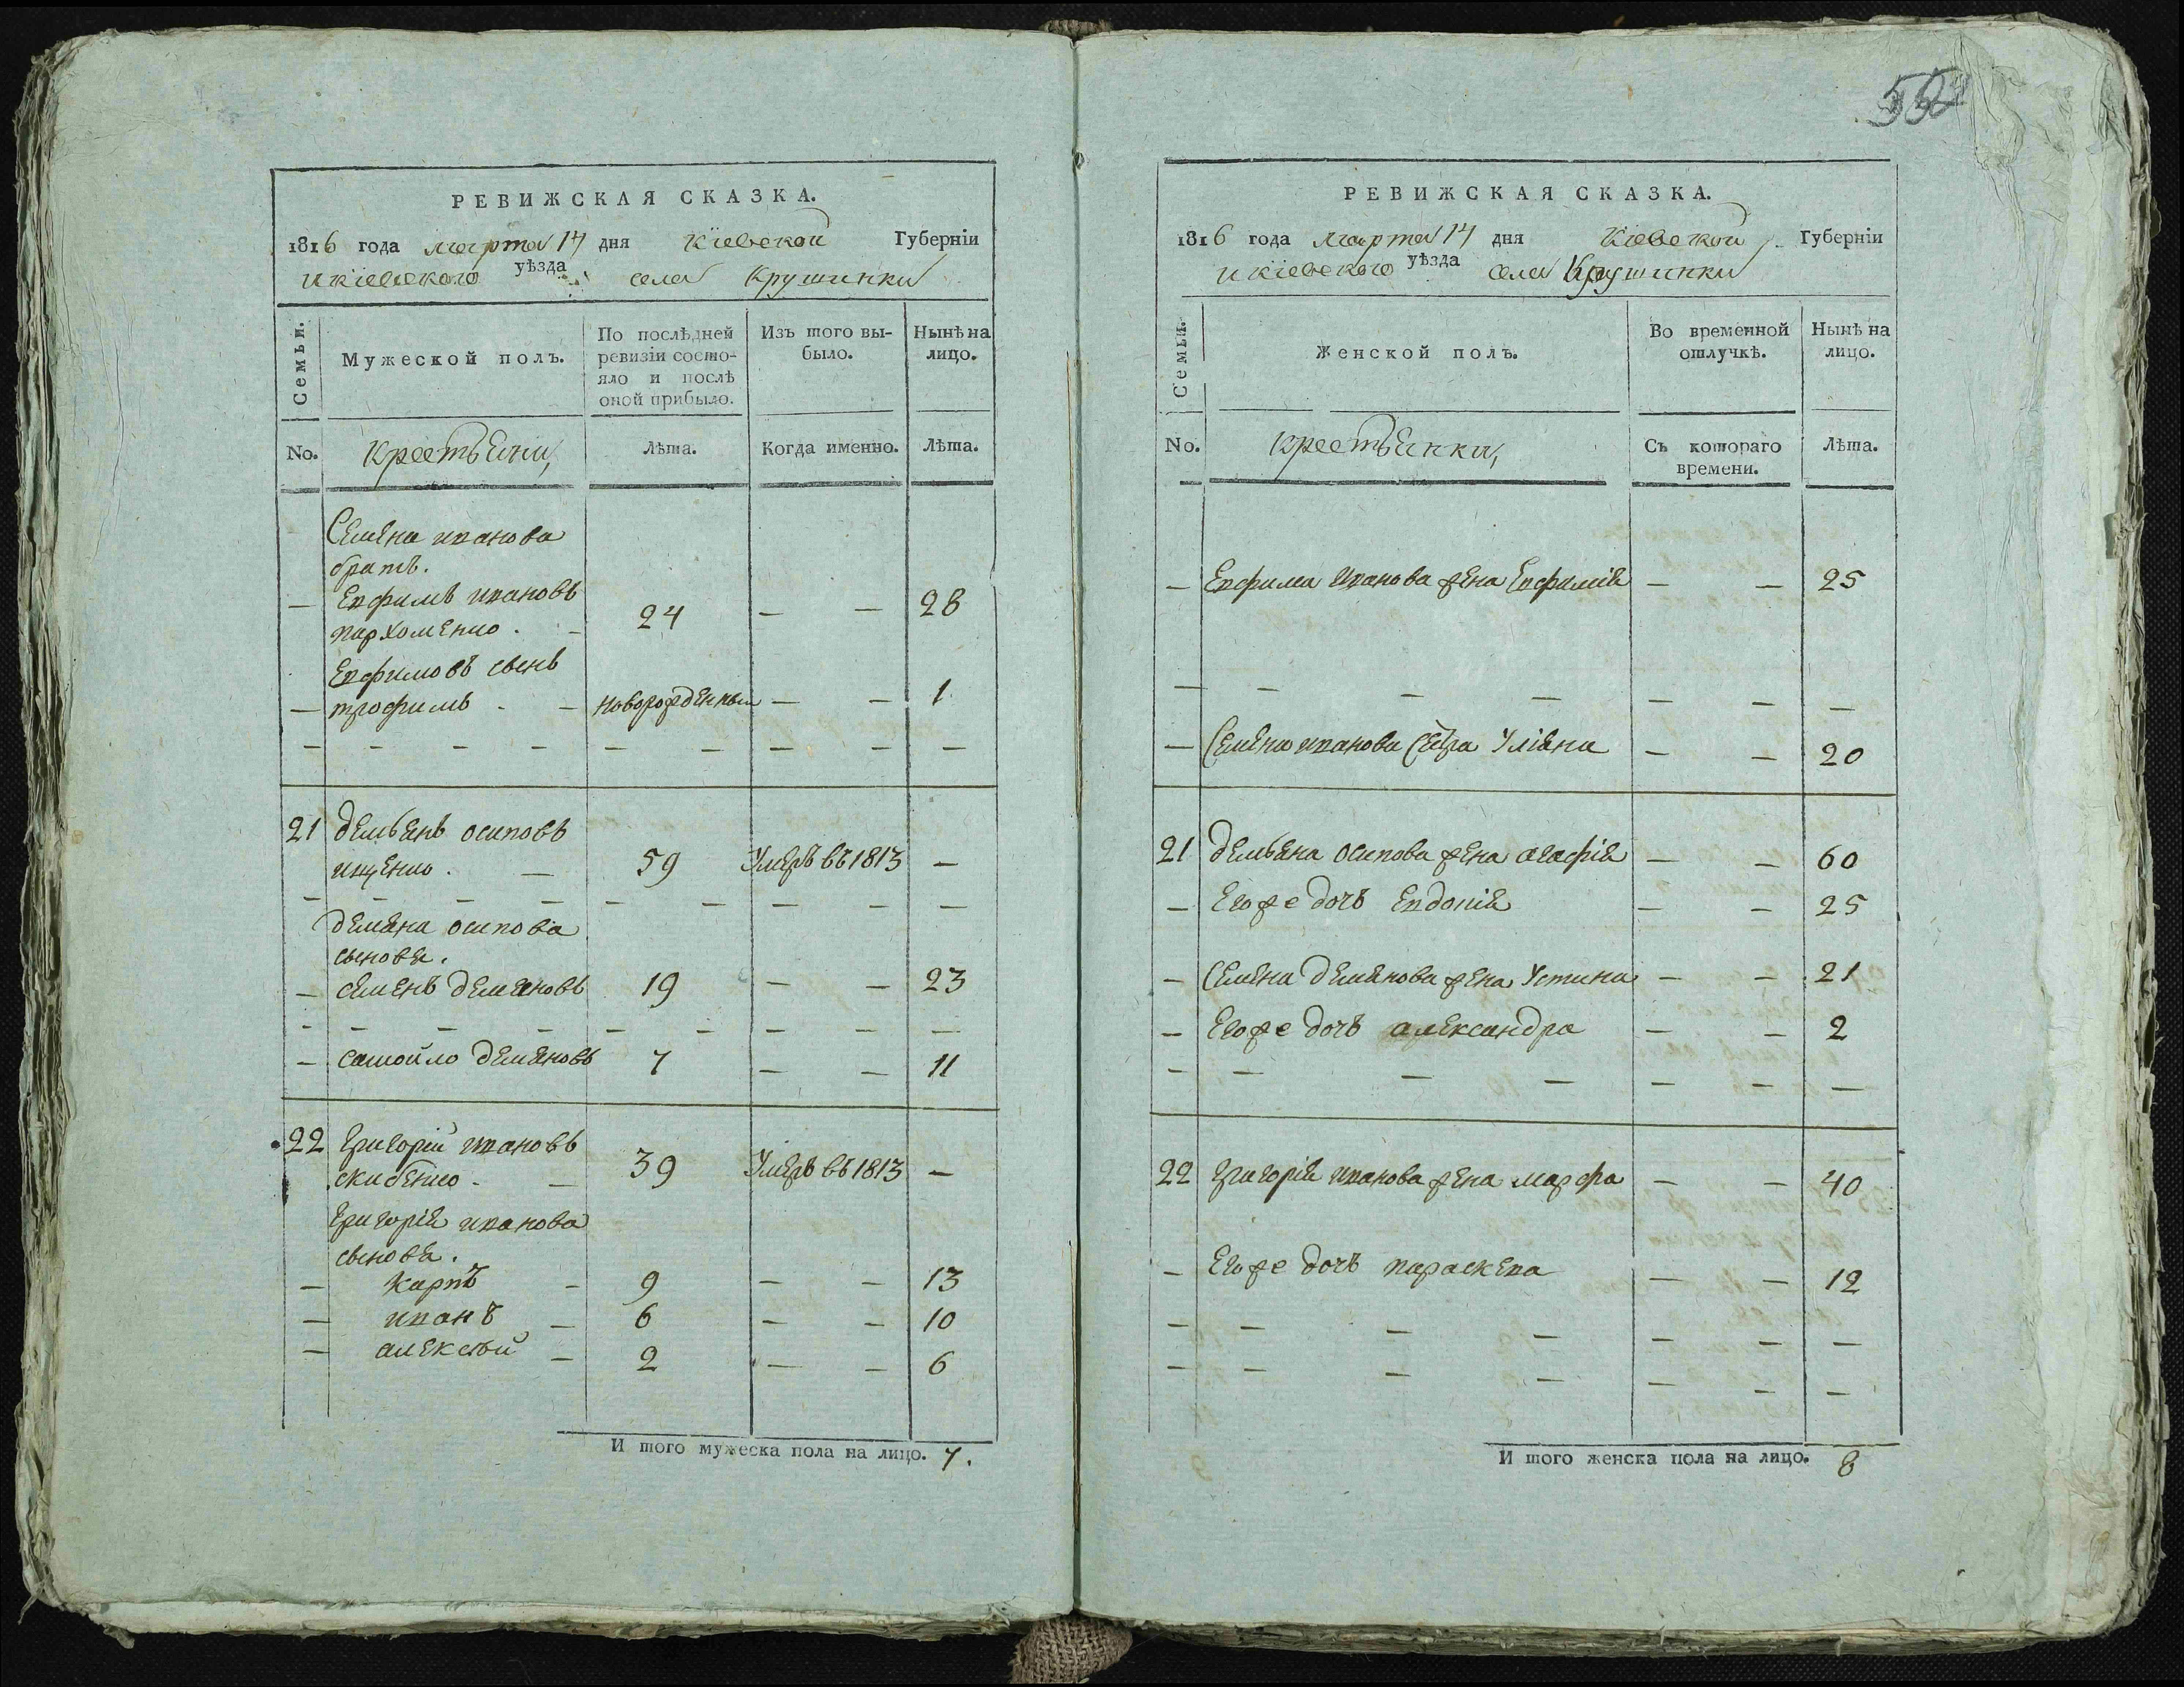 РЕВИЖСКАЯ СКАЗКА.
1816 года марта 14 дня Кіевской Губерніи
и кіевского уѣзда села Крушинки
Семьи.
Мужеской полъ.
По послѣдней ревизіи состояло и послѣ оной прибыло.
Изъ того выбыло.
Нынѣ на лицо.
No. крестьяни, Лѣта. Когда именно. Лѣта.
Семена иванова
братъ.
— Евфимъ ивановъ
пархоменко . — 24 — — 28
Евфимовъ сынъ
— трофимъ - — новорожденный — — 1
— — — — — — — — —
21 демьянъ осиповъ
ищенко . — 59 Умеръ въ 1813 —
— — — — — — — — —
демяна осипова
сыновя.
— семенъ демяновъ 19 — — 23
— — — — — — — — —
— самойло демяновъ 7 — — 11
22 григорій ивановъ
скибенко - — 39 Умеръ въ 1813 —
григорія иванова
сыновя.
— карпъ — 9 — — 13
— иванъ — 6 — — 10
— алексѣй — 2 — — 6
И того мужеска пола на лицо. 7.
РЕВИЖСКАЯ СКАЗКА.
1816 года марта 14 дня Кіевской Губерніи
и кіевского уѣзда села Крушинки
Семьи.
Женской полъ.
Во временной отлучкѣ.
Нынѣ на лицо.
No. крестьянки, Съ котораго времени. Лѣта.
— Евфима Иванова жена Евфимія — — 25
— — — — — — —
— Семена иванова сестра Уліяна — — 20
21 демьяна осипова жена агафія — — 60
— Егоже дочь Евдокія — — 25
— Семена демянова жена Устина — — 21
— Егоже дочь александра — — 2
— — — — — — —
22 григорія иванова жена марфа — — 40
— Егоже дочь параскева — — 12
— — — — — — —
— — — — — — —
И того женска пола на лицо. 8